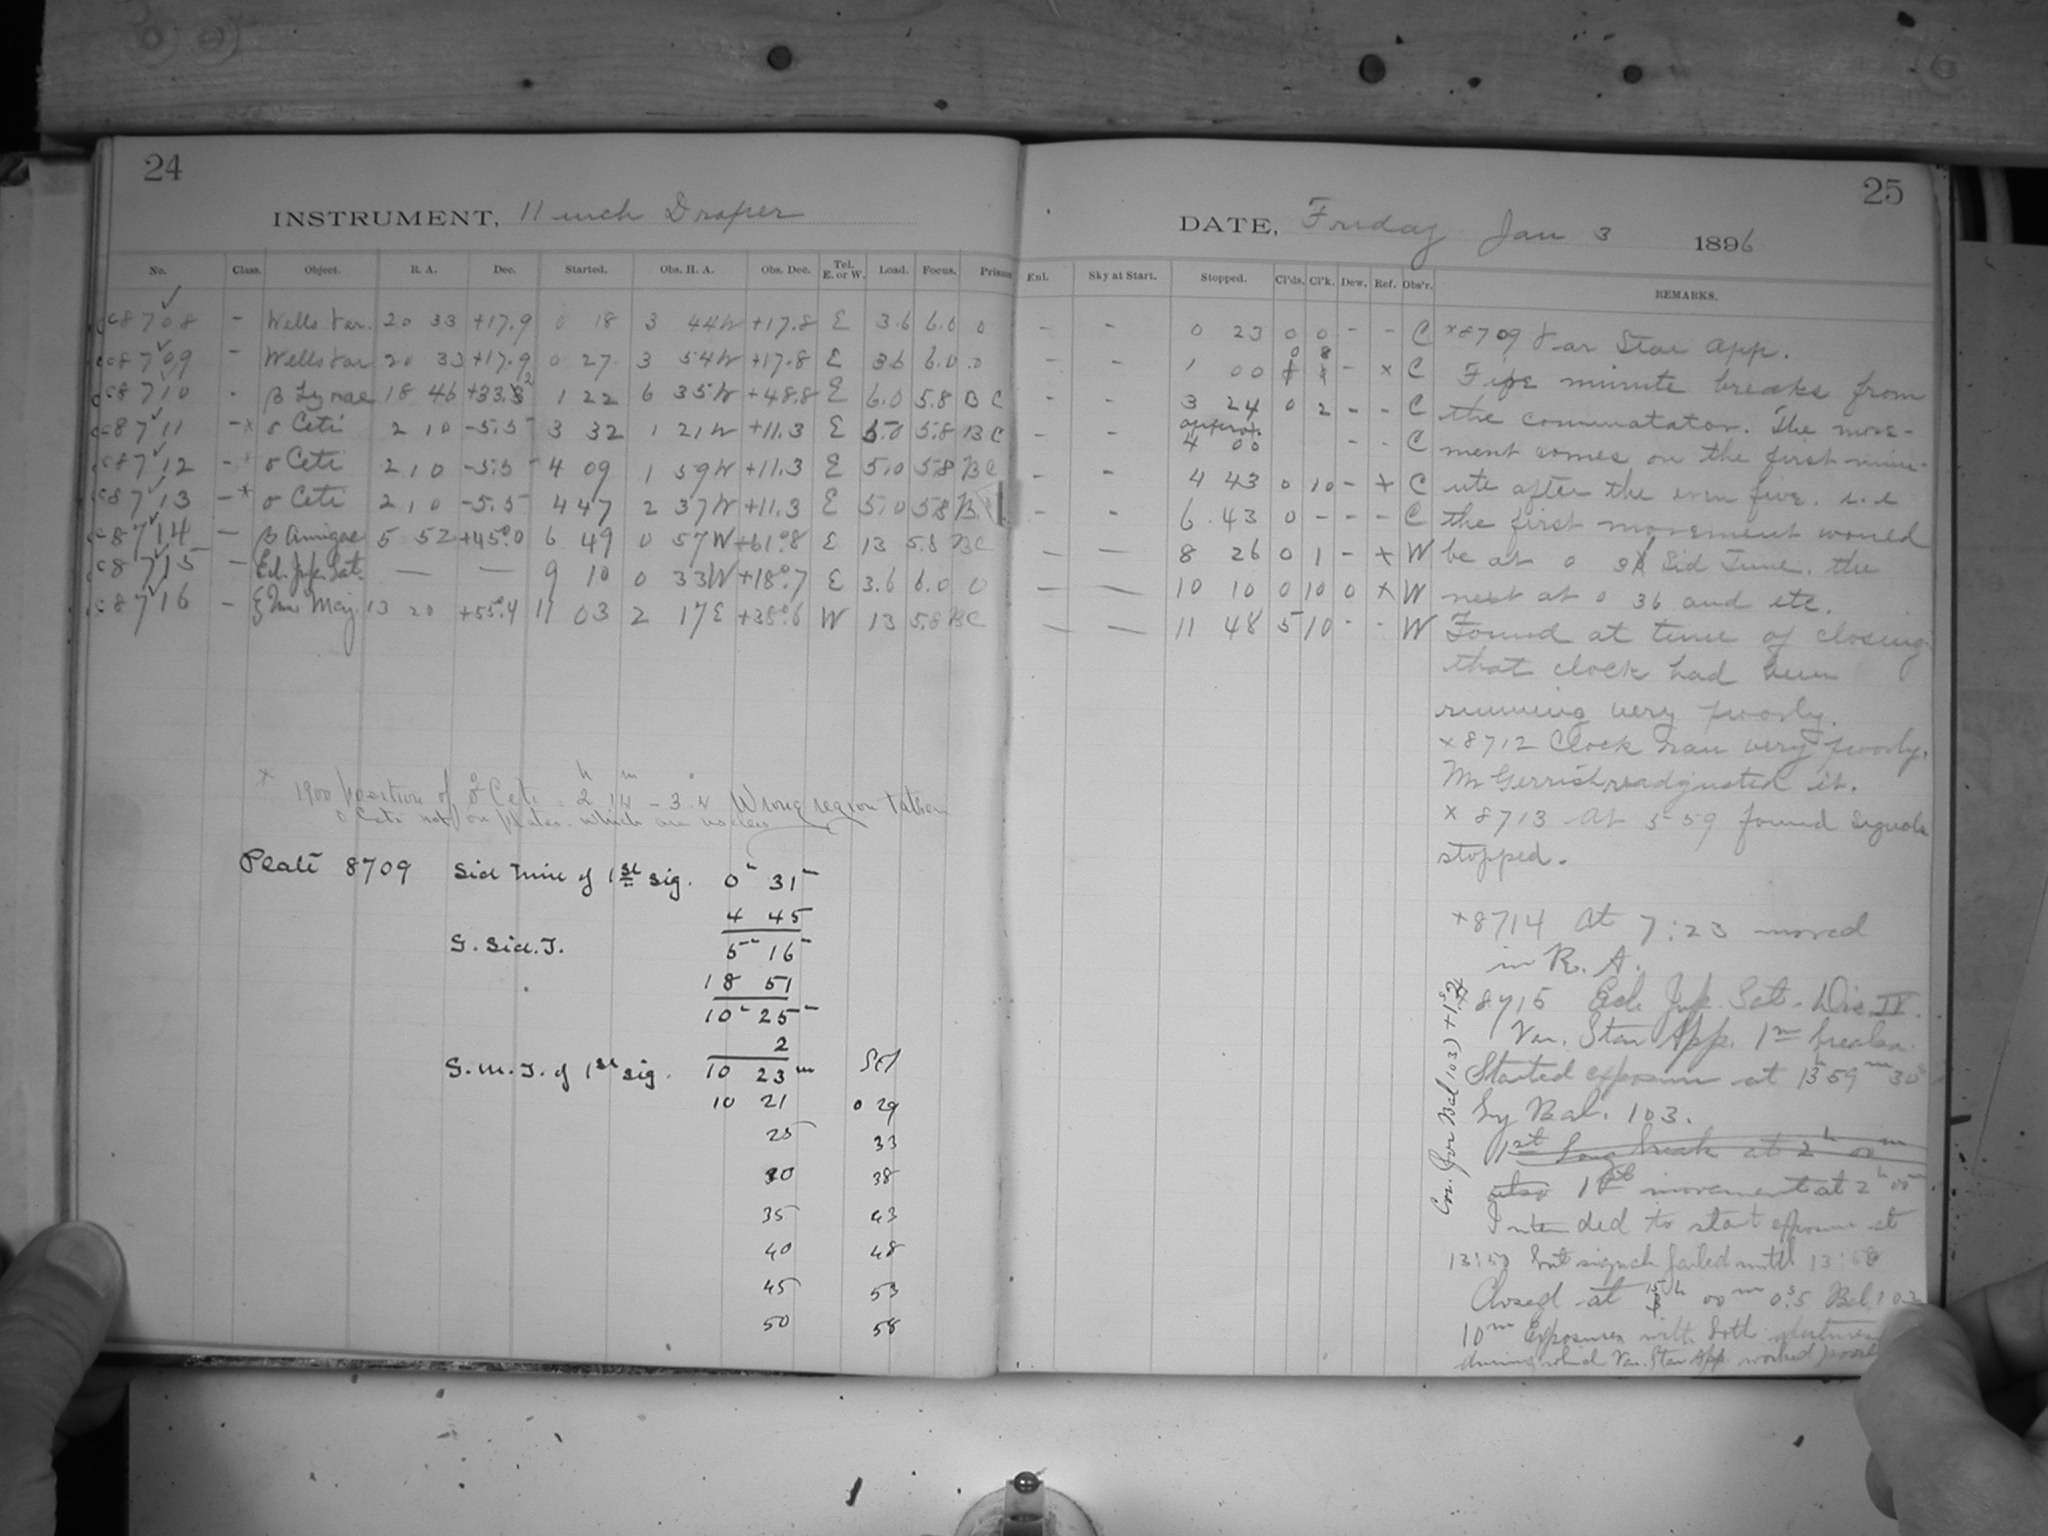 24
INSTRUMENT, 11 inch Draper
No. Class. Object. R. A. Dec. Started. Obs. H. A. Obs. Dec. Tel. E. or W. Load. Focus. Prisms
c8708 - Wells Var. 20 33 +17.9 0 18 3 44W +17.8 E 3.6 6.0 0
c8709 - Wells Var 20 33 +17.9 0 27 3 54W +17.8 E 3.6 6.0 0
c8710 - β Lyrae 18 46 +33.2 1 22 6 35W +48.8 E 6.0 5.8 BC
c8711 -x o Ceti 2 10 -5.5 3 32 1 21W +11.3 E 5.0 5.8 BC
c8712 - o Ceti 2 10 -5.5 4 09 1 59W +11.3 E 5.0 5.8 BC
c8713 -x o Ceti 2 10 -5.5 4 47 2 37W +11.3 E 5.0 5.8 B
c8714 - β Aurigae 5 52 +45°.0 6 49 0 57W +61°.8 E 13 5.8 BC
c8715 - Ecl. Jup. Sat. — — 9 10 0 33W +18°.7 E 3.6 6.0 0
c8716 - ξ Urs. Maj. 13 20 +55°.4 11 03 2 17E +38°.6 W 13 5.8 BC
x 1900 position of o Ceti = 2h 14m -3°.4 Wrong region taken
o Ceti not on plates. which are
Plate 8709 Sid Time of 1st sig. 0 31
4 45
G. Sid. T. 5 16
18 51
10 25
2
G. M. T. of 1st sig. 10 23m
10 21 0 29
25 33
30 38
35 43
40 48
45 53
50 58
25
DATE, Friday Jan 3 1896
Enl. Sky at Start. Stopped. Cl'ds. Cl'k. Dew. Ref. Obs'r. REMARKS.
- - 0 23 0 0 - - C
- - 1 00 0 8 - x C
- - 3 24 0 2 - - C
- - approx. 4 00 - - C
- - 4 43 0 10 - x C
- - 6 43 0 - - - C
— — 8 26 0 1 - x W
— — 10 10 0 10 0 x W
— — 11 48 5 10 - - W
x8709 Var Star App.
Five minute breaks from
the commutator. The move-
ment comes on the first min-
ute after the even five. i.e
the first movement would
be at 0 31 Sid Time. the
next at 0 36 and etc.
Found at time of closing
that clock had been
running very poorly.
x8712 Clock ran very poorly.
Mr Gerrish readjusted it.
x 8713 At 5 59 found signals
stopped.
x8714 At 7:23 moved
in R. A.
x8715 Ecl. Jup. Sat. - Dis. IV.
Var. Star App. 1m breaks.
Started exposure at 13h 59m 30s
by Bal. 103.
1st Long break at 2h 00m
also 1st movement at 2h 00m.
Intended to start exposure at
13:50 but signals failed until 13:58
Closed at 15h 00m 0s.5 Bal. 103
10m Exposures with both
during which Var. Star App. worked
Cor. for Bal 103) +1s.2